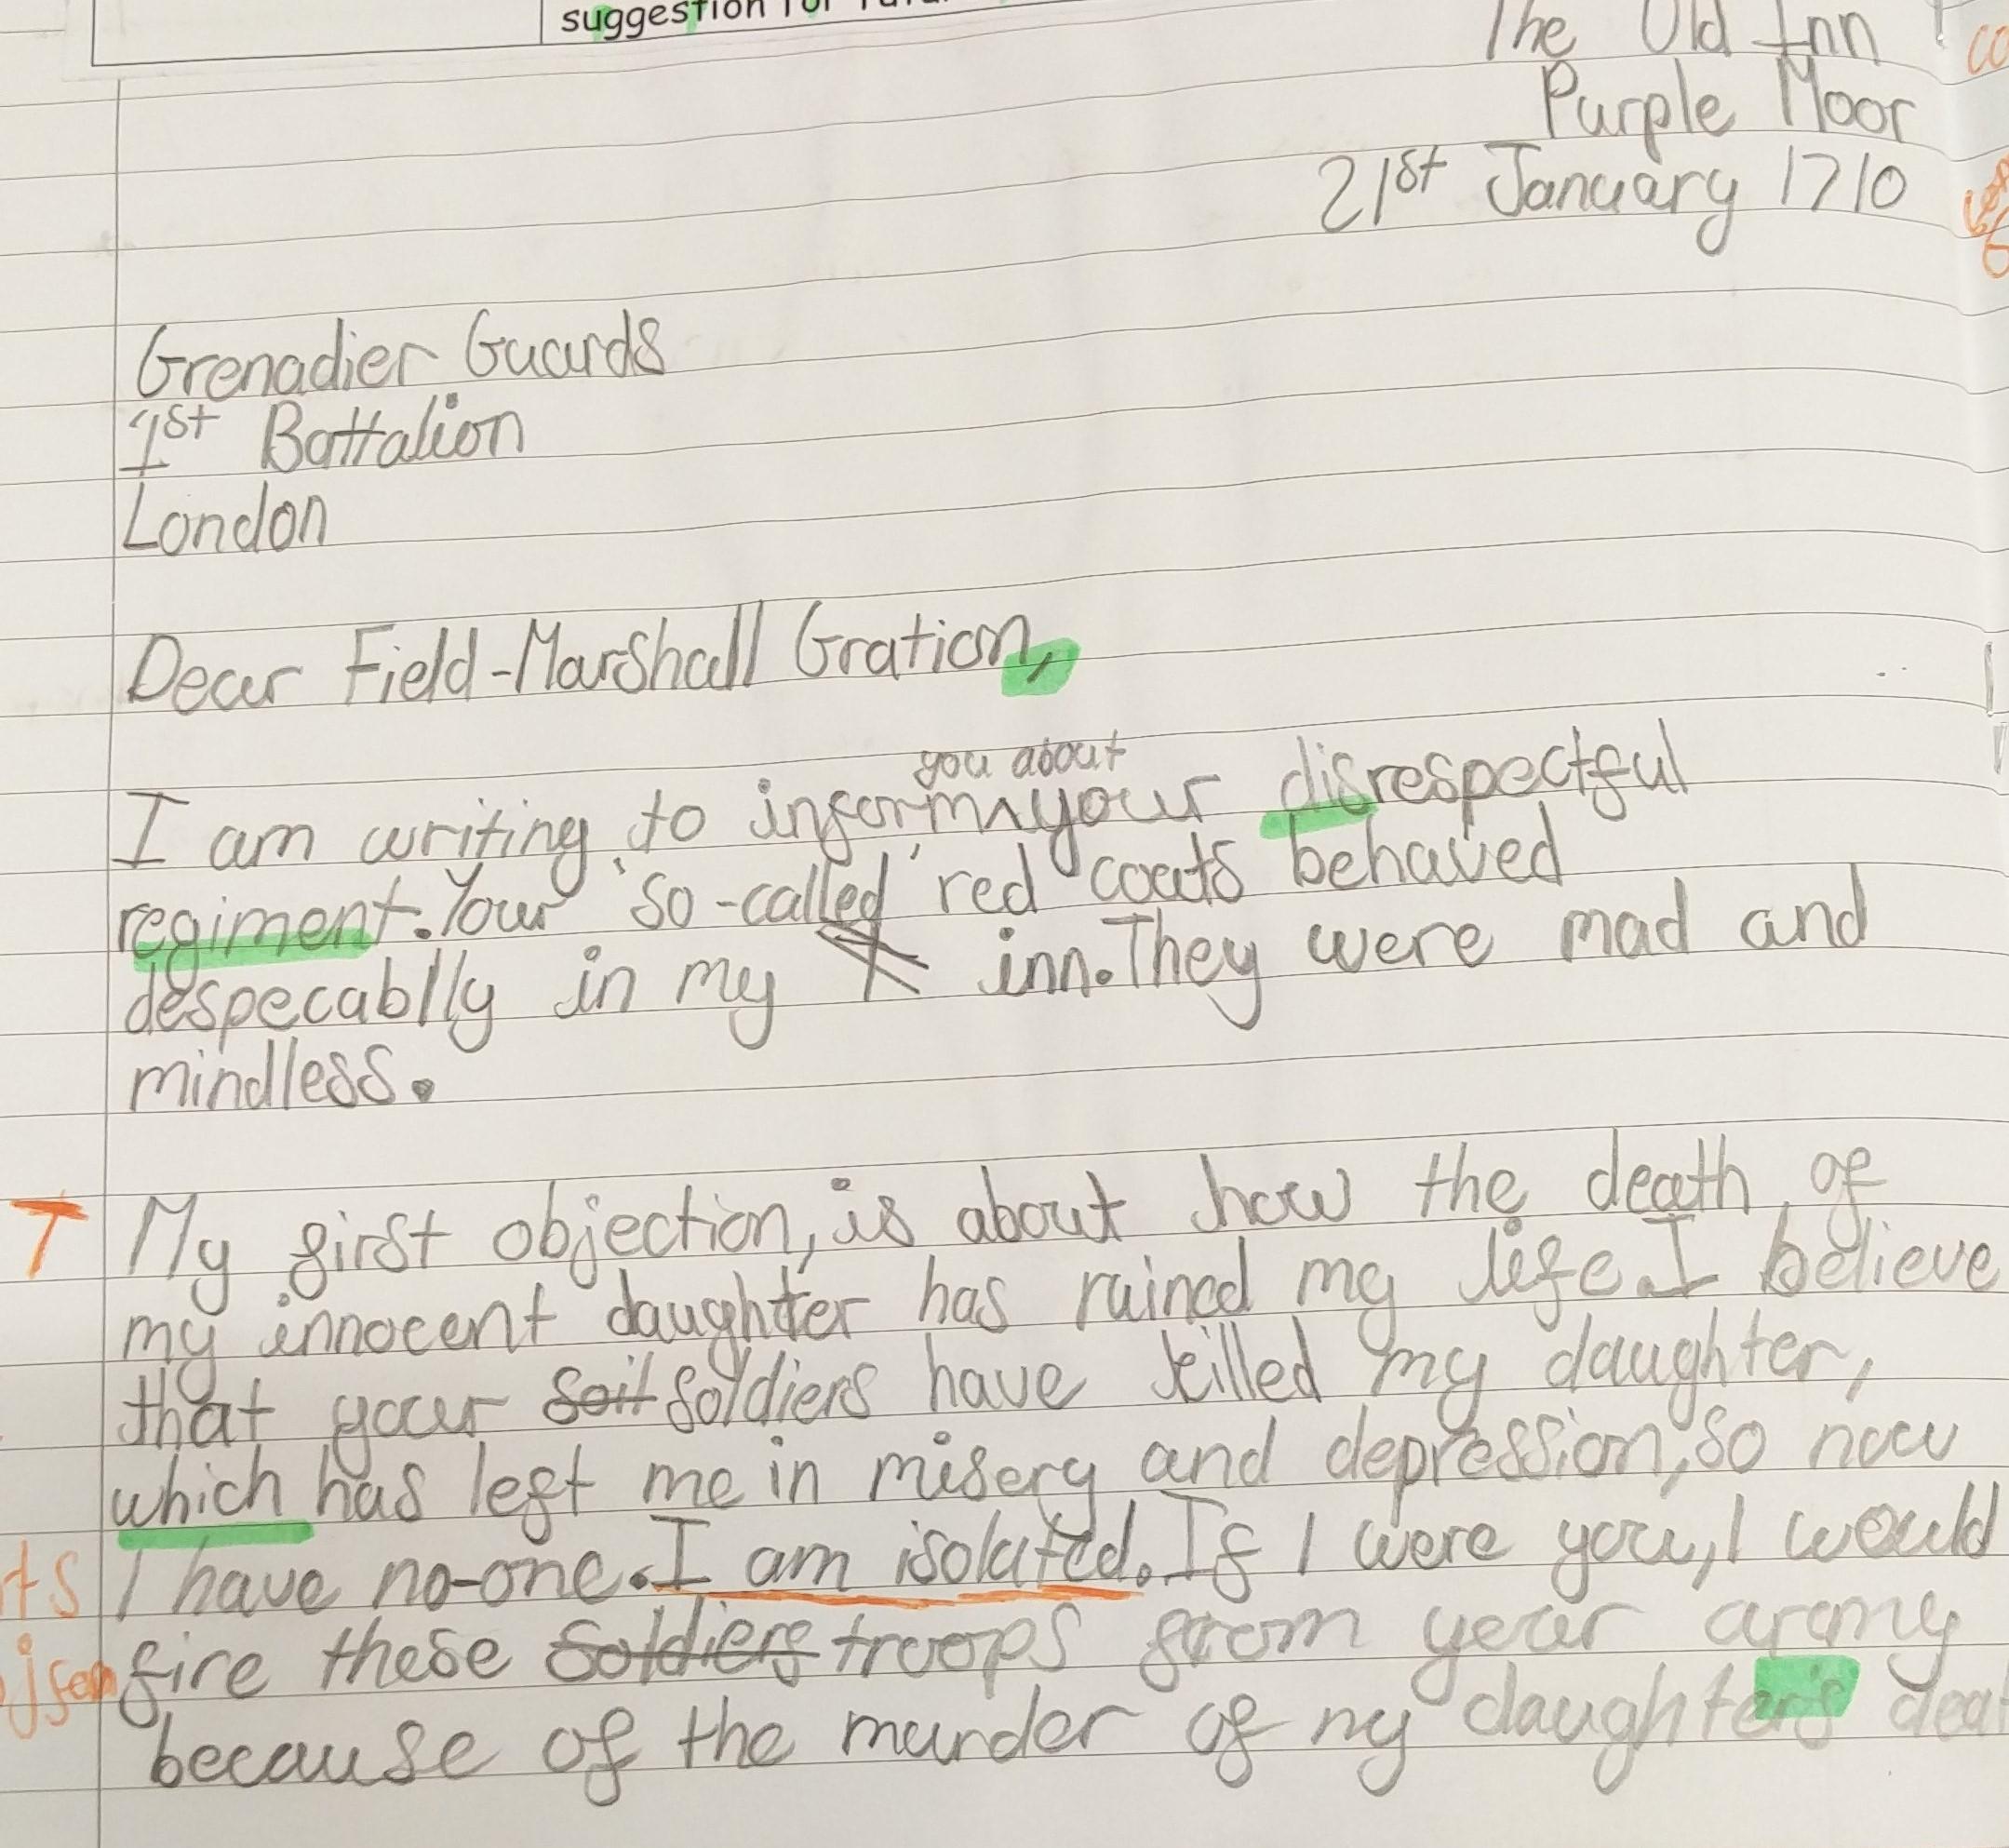 suggestion for
The Old Inn
Purple Moor
21st January 1710
Grenadier Guards
1st Battalion
London
Dear Field-Marshall Gration,
you about
I am writing to inform your disrespectful
regiment. Your 'so-called' red coats behaved
despecablly in my inn. They were mad and
mindless.
T My first objection, is about how the death of
my innocent daughter has ruined my life. I believe
that your soil soldiers have killed my daughter,
which has left me in misery and depression, so now
I have no-one. I am isolated. If I were you, I would
fire these soldiers troops from your army
because of the murder of my daughter's